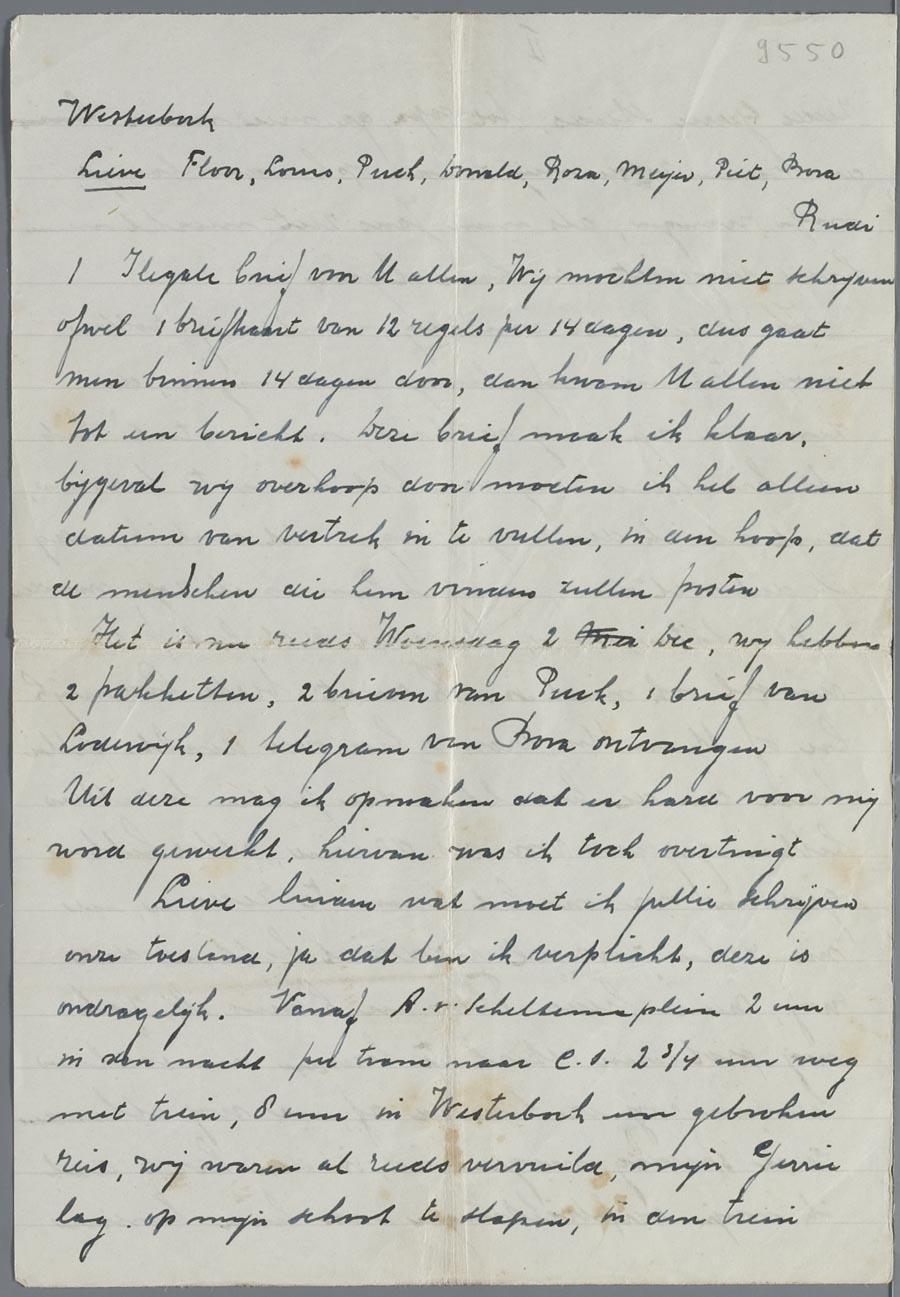 9550
Westerbork
Lieve Floor, Louis, Puck, Donald, Roza, Meijer, Piet, Brora
Rudi
1 Ilegale brief voor U allen, Wij mochten niet schrijven
ofwel 1 briefkaart van 12 regels per 14 dagen, dus gaat
men binnen 14 dagen door, dan kwam U allen niet
tot een bericht. Deze brief maak ik klaar,
bijgeval wij overhoop door moeten ik heb alleen
datum van vertrek in te vullen, in den hoop, dat
de menschen die hem vinden zullen posten
Het is nu reeds Woensdag 2 Dec, wij hebben
2 pakketten, 2 brieven van Puck, 1 brief van
Lodewijk, 1 telegram van Brora ontvangen
Uit deze mag ik opmaken dat er hard voor mij
word gewerkt, hiervan was ik toch overtuigt
Lieve luidam wat moet ik jullie schrijven
onze toestand, ja dat ben ik verplicht, deze is
ondragelijk. Vanaf A.v. Scheltemaplein 2 uur
in den nacht per tram naar C.S. 2 3/4 uur weg
met trein, 8 uur in Westerbork een gebroken
reis, wij waren al reeds vervuild, mijn Gerrie
lag op mijn schoot te slapen, in den trein